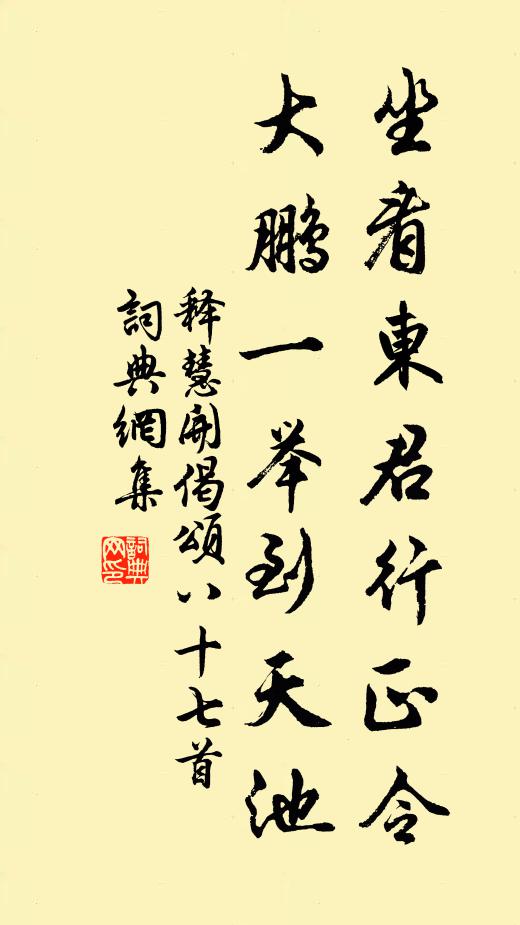 坐看東君行正令
大鹏一举到天池
释慧開偈頌八十七首
詞典網集
詞典網印